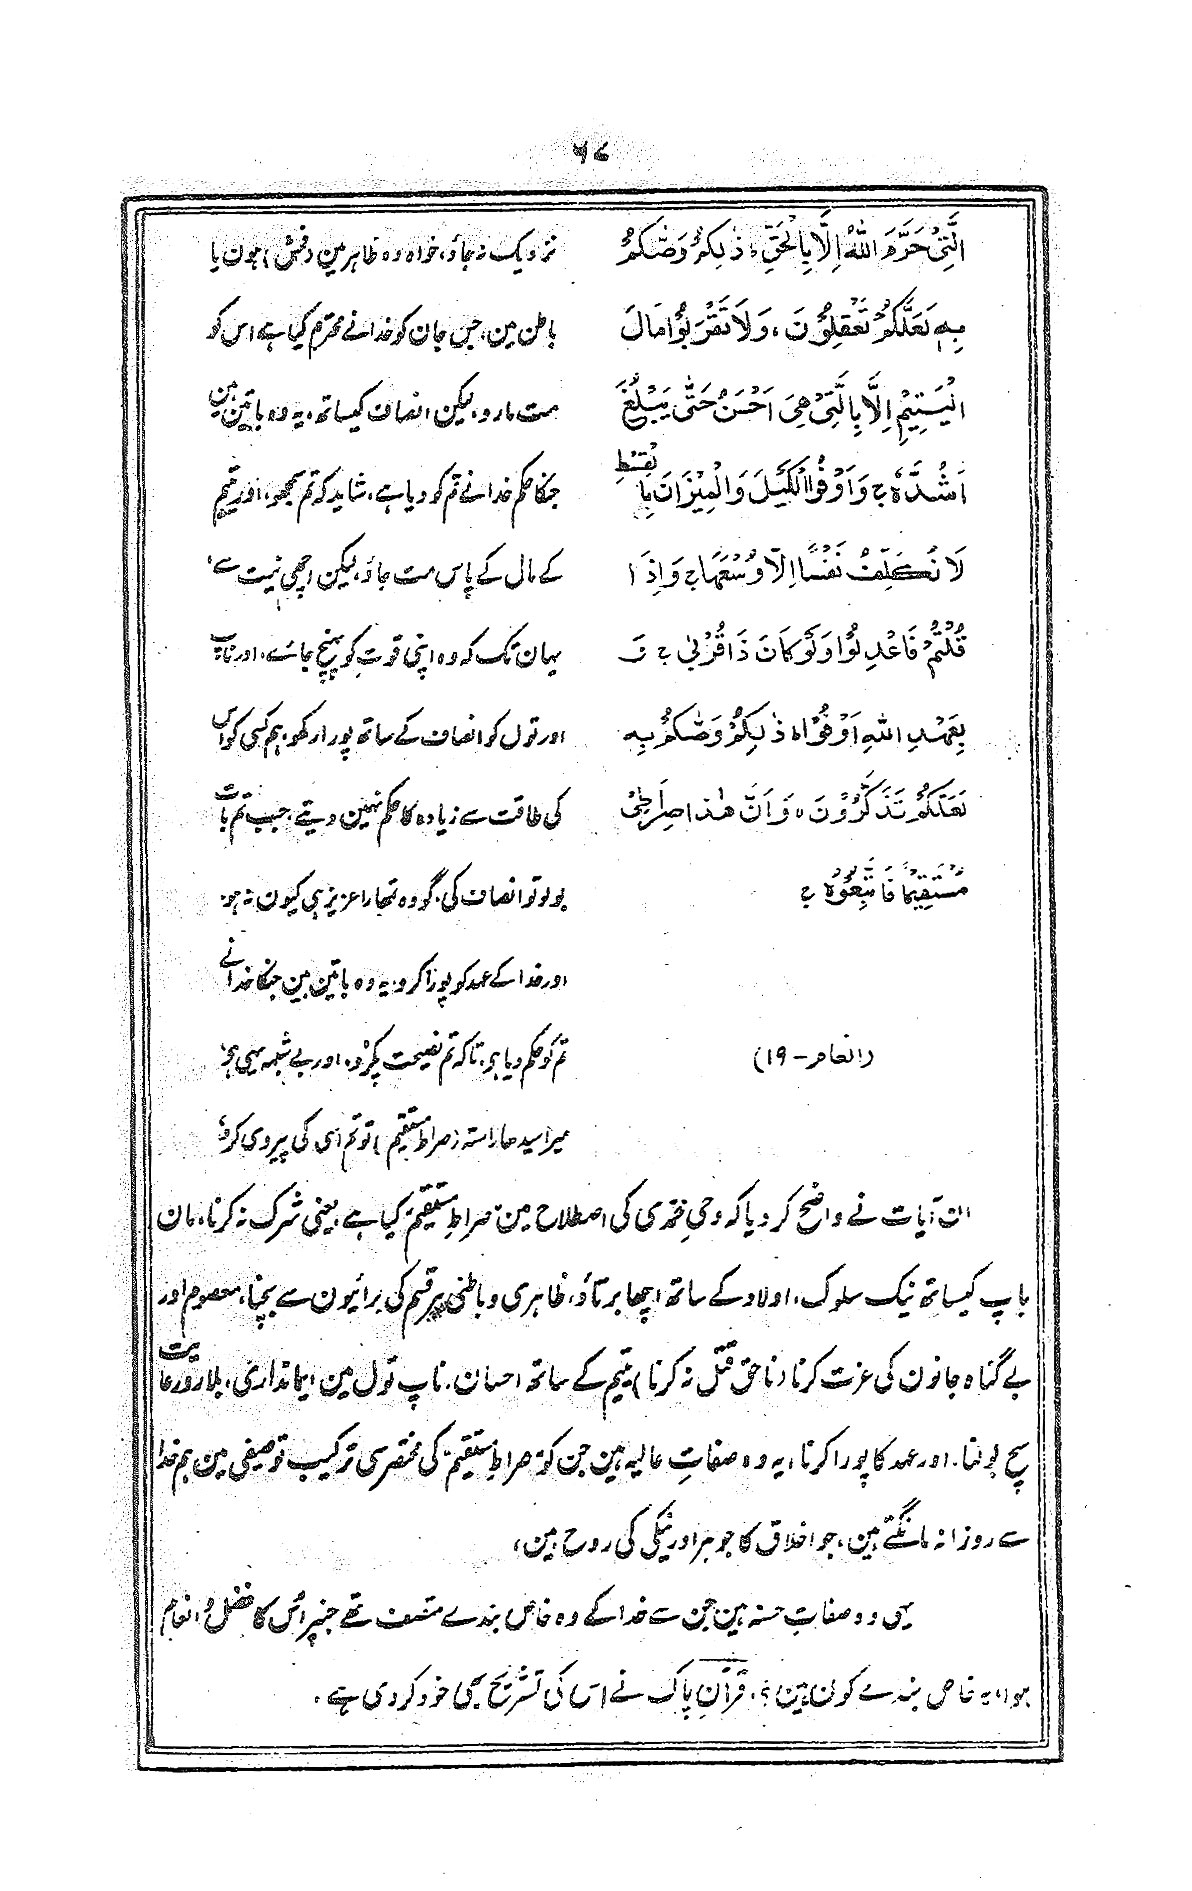 ۶۷
الَّتِیْ حَرَّمَ اللّٰهُ اِلَّا بِالْحَقِّ، ذٰلِكُمْ وَصّٰكُمْ
بِهٖ لَعَلَّكُمْ تَعْقِلُوْنَ، وَلَا تَقْرَبُوْا مَالَ
الْیَتِیْمِ اِلَّا بِالَّتِیْ هِیَ اَحْسَنُ حَتّٰی یَبْلُغَ
اَشُدَّهٗ ج وَاَوْفُوا الْكَیْلَ وَالْمِیْزَانَ بِالْقِسْطِ
لَا نُكَلِّفُ نَفْسًا اِلَّا وُسْعَهَا ج وَاِذَا
قُلْتُمْ فَاعْدِلُوْا وَلَوْ كَانَ ذَا قُرْبٰی ج وَ
بِعَهْدِ اللّٰهِ اَوْفُوْا ه ذٰلِكُمْ وَصّٰكُمْ بِهٖ
لَعَلَّكُمْ تَذَكَّرُوْنَ ه وَاَنَّ هٰذَا صِرَاطِیْ
مُسْتَقِیْمًا فَاتَّبِعُوْهُ ج
(انعام - ۱۹)
نزدیک نہ جاؤ، خواہ وہ ظاہر مین (فحش) ہون یا
باطن مین، جس جان کو خدا نے محترم کیا ہے اس کو
مت مارو، لیکن انصاف کیساتھ، یہ وہ باتین ہین
جنکا حکم خدا نے تم کو دیا ہے، شاید کہ تم سمجھو، اور یتیم
کے مال کے پاس مت جاؤ، لیکن اچھی نیت سے،
یہان تک کہ وہ اپنی قوت کو پہنچ جائے، اور ناپ
اور تول کو انصاف کے ساتھ پورا رکھو، ہم کسی کو اس
کی طاقت سے زیادہ کا حکم نہین دیتے، جب تم بات
بولو تو انصاف کی، گو وہ تمھارا عزیز ہی کیون نہ ہو،
اور خدا کے عہد کو پورا کرو، یہ وہ باتین ہین جنکا خدا نے
تم کو حکم دیا ہو، تاکہ تم نصیحت پکڑو، اور بے شبہہ یہی ہو
میرا سیدھا راستہ (صراطِ مستقیم) تو تم اسی کی پیروی کرو،
ان آیات نے واضح کر دیا کہ وحیِ محمدی کی اصطلاح مین صراطِ مستقیم کیا ہے، یعنی شرک نہ کرنا، مان
باپ کیساتھ نیک سلوک، اولاد کے ساتھ اچھا برتاؤ، ظاہری و باطنی ہر قسم کی برائیون سے بچنا، معصوم اور
بے گناہ جانون کی عزت کرنا (ناحق قتل نہ کرنا) یتیم کے ساتھ احسان، ناپ تول مین ایمانداری، بلا رو رعایت
سچ بولنا، اور عہد کا پورا کرنا، یہ وہ صفاتِ عالیہ ہین جن کو صراطِ مستقیم کی مختصر سی ترکیبِ توصیفی مین ہم خدا
سے روزانہ مانگتے ہین، جو اخلاق کا جوہر اور نیکی کی روح ہین،
یہی وہ صفاتِ حسنہ ہین جن سے خدا کے وہ خاص بندے متصف تھے جنپر اُس کا فضل و انعام
ہوا، یہ خاص بندے کون ہین؟، قرآنِ پاک نے اس کی تشریح بھی خود کر دی ہے،